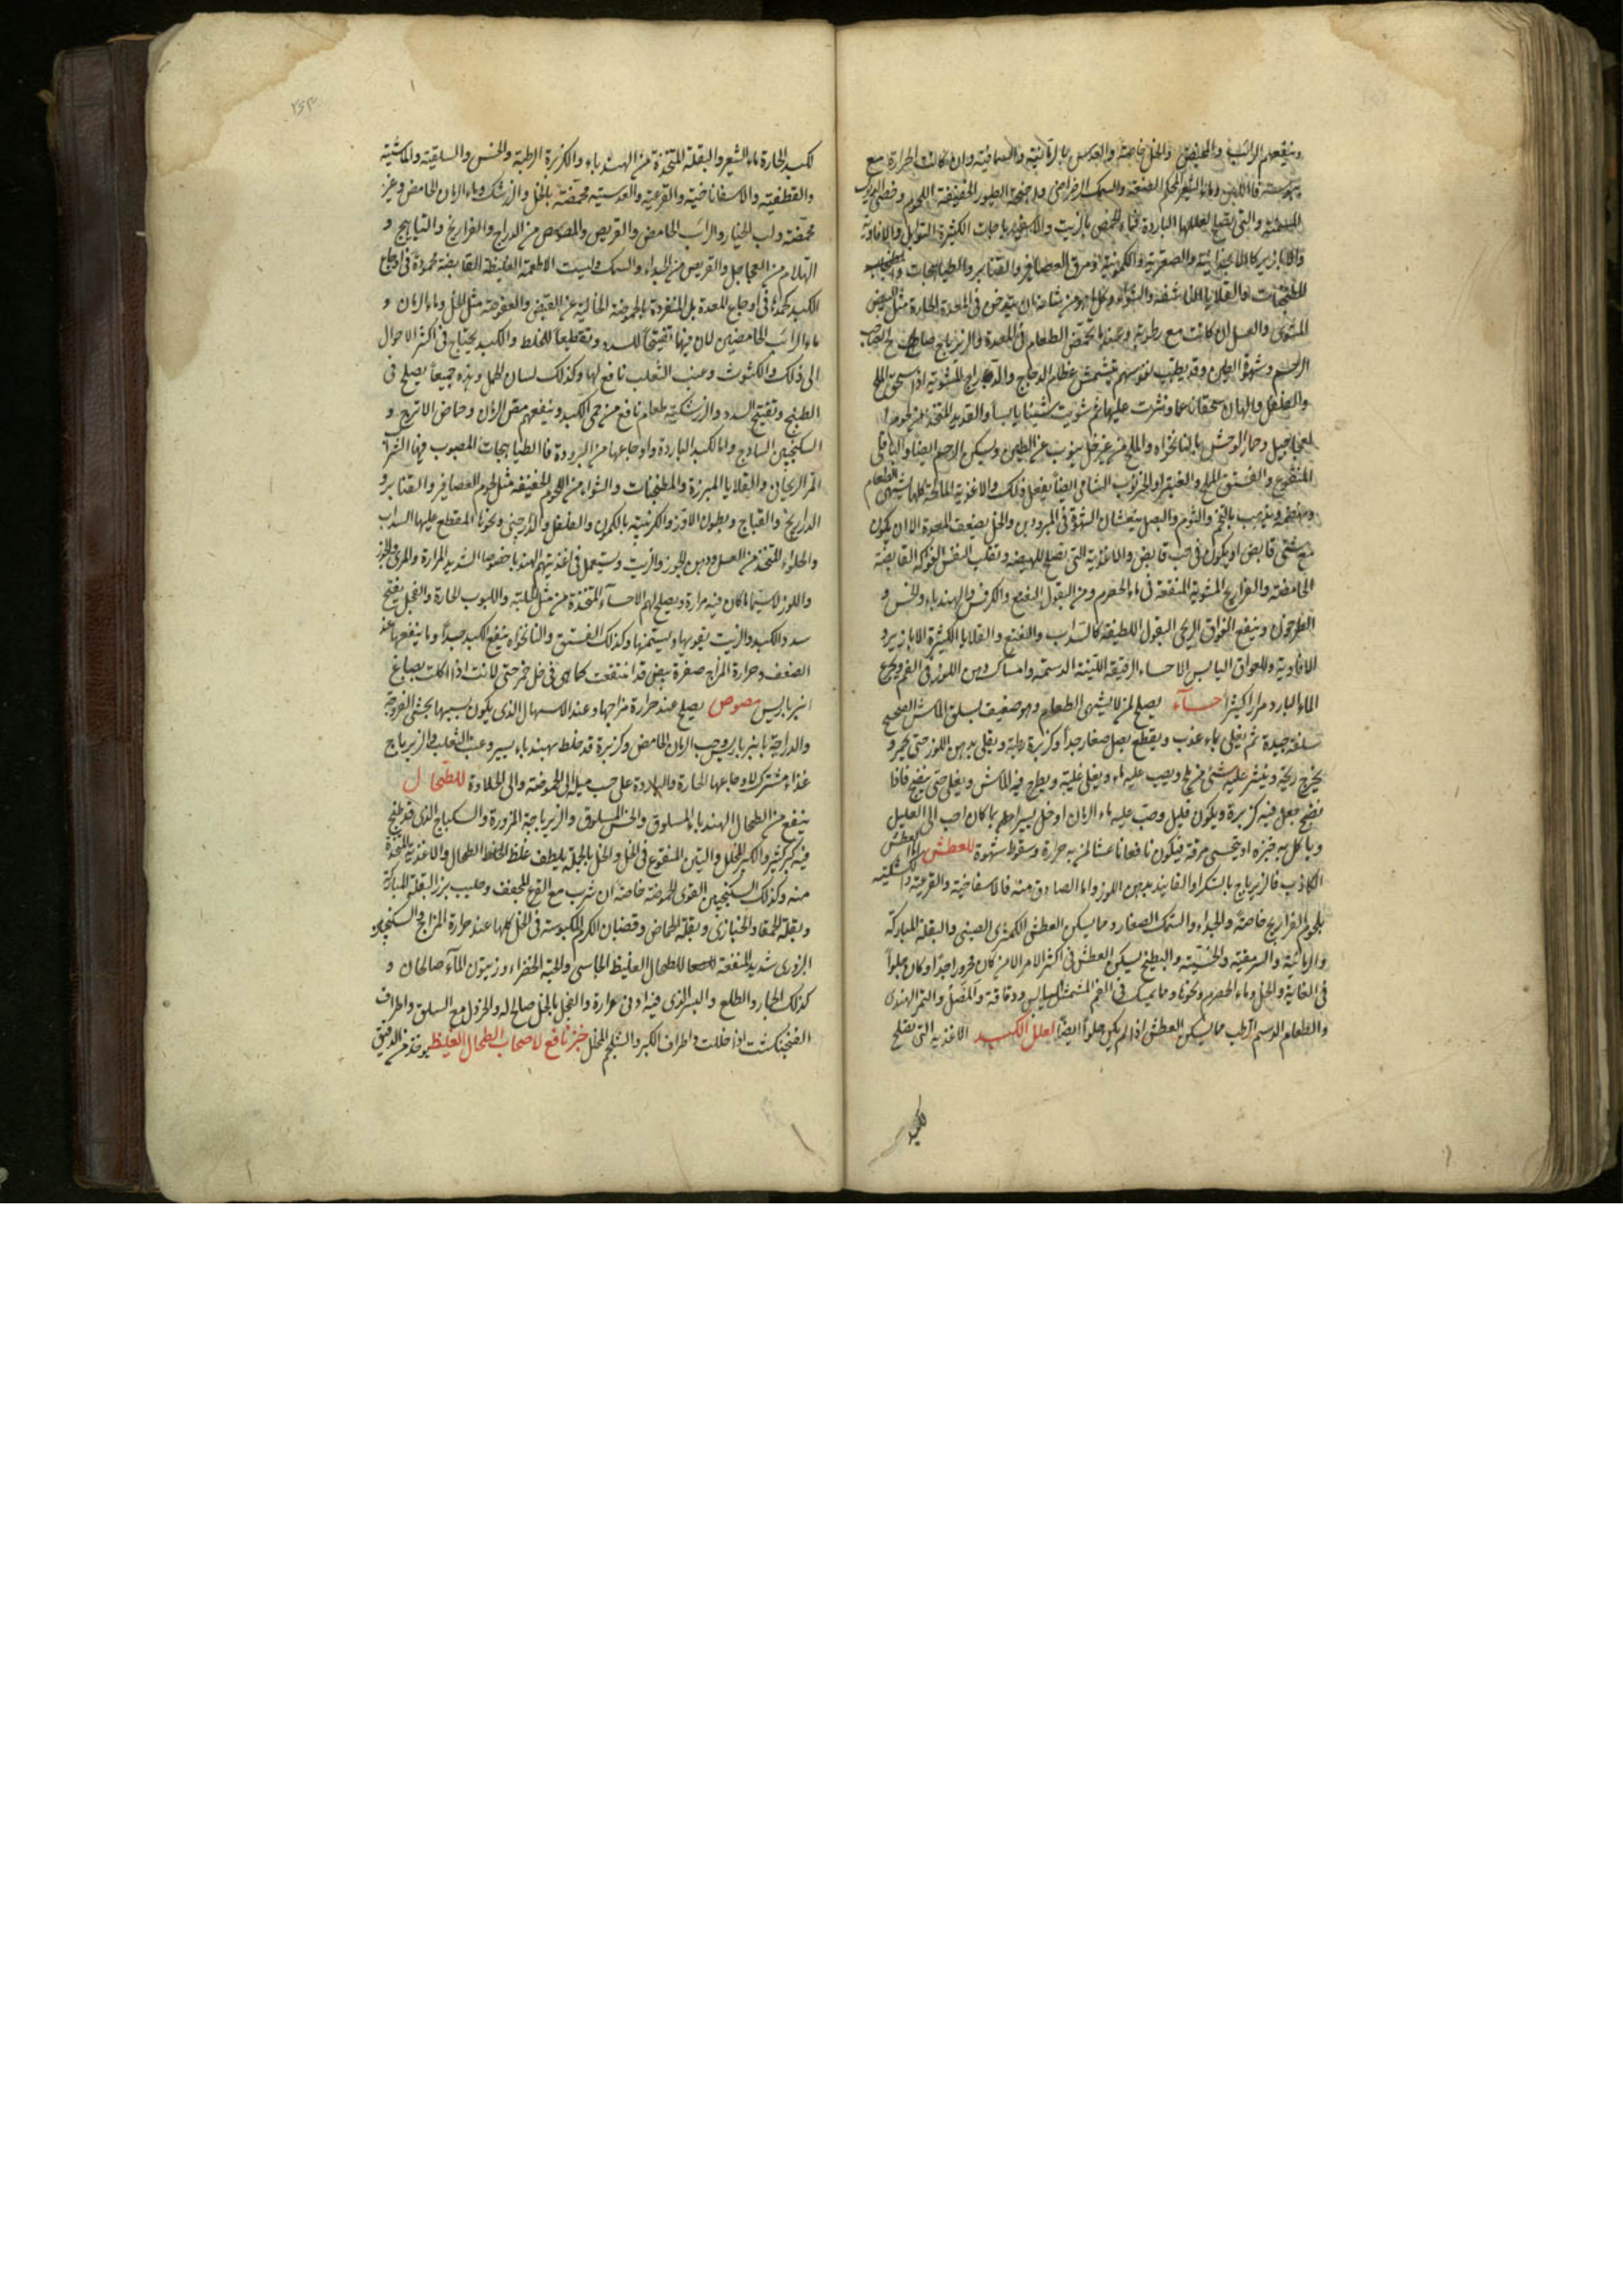 وينفعهم الرائب والمخيض والخل خاصة والعدس بالرمانية والسماقية وان كانت الحرارة مع
يبوسة فاللبن وماء الشعير المحكم الصنعة والسمك الرضراضى واجنحة الطيور الخفيفة اللحوم وخصى الديوك
المسمنة والتى تصلح لعللها الباردة فماء الحمص بالزيت والاسفيدباجات الكثيرة التوابل والافاوية
والابازير
المطجنات والقلايا الناشفة والشواء وكل ما من شانه ان يتدخن فى المعدة الحارة مثل البيض
المشوى والعسل ان كانت مع رطوبة وعندما يحمض الطعام فى المعدة والزيرباج صالح لاصحاب
الوحم وشهوة الطين وقد يطيب نفوسهم بتمشمش عظام الدجاج والدراج المشوية اذا سحق الملح
والفلفل والهال سحقا ناعما ونثرت عليها ثم شويت شيئا يابسا والقديد المتخذ من لحوم
العجاجيل وحمار الوحش بالنانخواه والملح من غير خل ينوب عن الطين ويسكن الوحم ايضا والباقلى
المنقوع والفستق المملح والغبيرا والخرنوب الشامى ايضا يفعل ذلك والاغذية المالحة كلها تشهى الطعام
وتهضمه ويذهب بالتخم والثوم والبصل ينعشان الشهوة فى المبرودين والخل يضعف المعدة الا ان يكون
مع شئ قابض او يكون فى حب قابض والاغذية التى تصلح للهيضة وتقلب النفس الفواكه القابضة
الحامضة والفراريج المشوية المنقعة فى ماء الحصرم ومن البقول النعنع والكرفس والهندباء والخس و
الطرخون وينفع الفواق الريحى البقول اللطيفة كالسداب والنعنع والقلايا الكثيرة الابازير و
الافاوية وللفواق اليابس الاحساء الرقيقة اللينة الدسمة وامساك دهن اللوز فى الفم وتجرع
الماء البارد مرارا كثيرا حساء يصلح لمن لا يشتهى الطعام وهو ضعيف يسلق الماش الصحيح
سلقة جيدة ثم يغلى بماء عذب ويقطع بصل صغار جدا وكزبرة رطبة ويقلى بدهن اللوز حتى يحمر و
يخرج ريحه وينثر عليه شئ من ملح ويصب عليه ماء ويغلى غلية ويطرح فيه الماش ويغلى حتى ينضج فاذا
نضج جعل فيه كزبرة ويكون قليل وصب عليه ماء الرمان او خل يسير ايهما كان احب الى العليل
وياكل به خبزه او يتحسى مرقه فيكون نافعا ناعشا لمن به حرارة وسقوط شهوة للعطش اما العطش
الكاذب فالزيرباج بالسكر او الفانيد بدهن اللوز واما الصادق منه فالاسفاخية والقرعية والكشكية
بلحوم الفراريج خاصة والجداء والسمك الصغار ومما يسكن العطش الكمثرى الصينى والبقلة المباركة
والرمانية والسرمقية والخسية والبطيخ يسكن العطش فى اكثر الامر الا من كان محرورا جدا او كان حلوا
فى الغاية والخل وماء الحصرم ونحوها ومما يمسك فى الفم المشمش اليابس ودقاقه والمصل والتمر الهندى
والطعام الدسم الرطب مما يسكن العطش اذا لم يكن حلوا ايضا لعلل الكبد الاغذية التى تصلح
للكبد
لكبد الحارة ماء الشعير والبقلة المتخذة من الهندباء والكزبرة الرطبة والخس والسلقية والماشية
والقطفية والاسفاناخية والقرعية والعدسية محمضة بالخل والزرشك وماء الرمان الحامض وغير
محمضة ولب الخيار والرائب الحامض والقريص والمصوص من الدراج والفراريخ والتياهيج و
الهلام من العجاجيل والقريص من الجداء والسمك وليست الاطعمة الغليظة القابضة محمودة فى اوجاع
الكبد كحمدها فى اوجاع المعدة بل المنفردة بالحموضة الخالية عن القبض والعفوصة مثل الخل وماء الرمان و
ماء الرائب الحامضين لان فيها تفتيحا للسدد وتقطيعا للخلط والكبد يحتاج فى اكثر الاحوال
الى ذلك والكشوث وعنب الثعلب نافع لها وكذلك لسان الحمل وهذه جميعا يصلح فى
الطبيخ وتفتيح السدد والزرشكية طعام نافع من حمى الكبد وينفعهم مص الرمان وحماض الاترج و
السكنجبين الساذج واما الكبد الباردة واوجاعها من البرودة فالطباهجات المصبوب فيها الشراب
المر الريحانى والقلايا المبزرة والمطجنات والشواء من اللحوم الخفيفة مثل لحوم العصافير والقنابر و
الدراريخ والقباج وبطون الاوز والكرنبية بالكمون والفلفل والدارچينى ونحوها المقطع عليها السداب
والحلواء المتخذ من العسل ودهن الجوز والزيت ويستعمل فى اغذيتهم الهندبا خصوصا الشديد المرارة والمرى والجوز
واللوز لاسيما ما كان فيه مرارة ويصلح لهم الاحساء المتخذة من مثل الحلبة واللبوب الحارة والفجل يفتح
سدد الكبد والزيت يقويها ويسخنها وكذلك الفستق والنانخواه ينفع الكبد جيدا وما ينفعها عند
الضعف وحرارة المزاج صفرة بيض قد انتقعت كما هى فى خل خمر حتى لانت اذا اكلت بصباغ
انبرباريس مصوص يصلح عند حرارة مزاجها وعند الاسهال الذى يكون بسببها يحشى الفروجة
والدراجة بانبرباريس وحب الرمان الحامض وكزبرة قد خلط بهندباء يسير وعنب الثعلب والزيرباج
غذاء مشترك لاوجاعها الحارة والباردة على حسب ميله الى الحموضة والى الحلاوة للطحال
ينفع من الطحال الهندباء المسلوق والخس المسلوق والزيرباجة المزورة والسكباج الذى قد طبخ
فيه كبر كثير والكبر المخلل والتين المنقوع فى الخل والخل بالجملة يلطف غلظ الخلط الطحال والاغذية المتخذة
منه وكذلك السكنجبين القوى الحموضة خاصة ان شرب مع القرع المجفف وحليب بزر البقلة المباركة
وبقلة الحمقا والخبازى وبقلة الحماض وقضبان الكرم المكبوسة فى الخل كلها عند حرارة المزاج والسكنجبين
البزورى شديد المنفعة للطحال الغليظ الجاسى والحبة الخضراء وزيتون الماء صالحان و
كذلك الجمار والطلع والبسر الذى فيه ادنى مرارة والفجل بالخل صالح له والخردل مع السلق واطراف
الفنجنكشت اذا خللت واطراف الكبر والشلجم المخلل خبز نافع لاصحاب الطحال الغليظ يوخذ من الدقيق